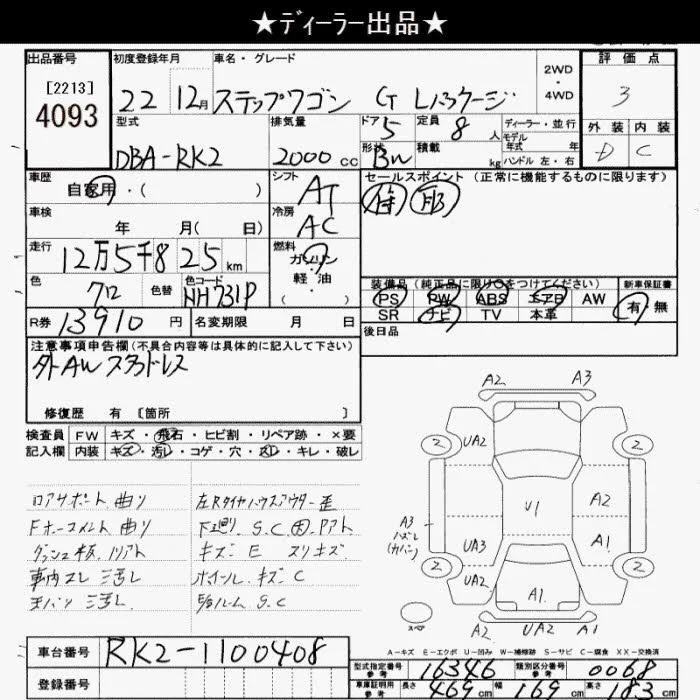 ★ディーラー出品★
出品番号 初度登録年月 車名・グレード 2WD・4WD 評価点
[2213]
4093
22 12月 ステップワゴン G Lパッケージ 3
型式 排気量 ドア 定員 ディーラー・並行 外装 内装
DBA-RK2 2000cc 5 8人 モデル年式 年 D C
形状 BW 積載 kg ハンドル 左・右
車歴 自家用・( ) シフト AT セールスポイント (正常に機能するものに限ります)
車検 年 月( 日) 冷房 AC
走行 12万5千825km 燃料 ガソリン・軽油・( )
色 クロ 色替 色コード NH731P
装備品 (純正品に限り○をつけてください) 新車保証書
PS PW ABS エアB AW 有・無
SR ナビ TV 本革
R券 13910円 名変期限 月 日 後日品
注意事項申告欄(不具合内容等は具体的に記入して下さい)
外AW スタッドレス
修復歴 有 [箇所 ]
検査員 FW キズ・飛石・ヒビ割・リペア跡・×要
記入欄 内装 キズ・汚レ・コゲ・穴・スレ・キレ・破レ
ロアサポート 曲り 左Rタイヤハウスアウター 歪
曲り 下廻り S.C
キズ E スリキズ
車内スレ 汚レ ホイール キズ C
汚レ S.C
A2 A3
2 UA2 2
U1 A2
A3
(カバー)
UA3 A1
2 UA2 A1 2
スペア A2 UA2 A1
A-キズ E-エクボ U-凹み W-補修跡 S-サビ C-腐食 XX-交換済
車台番号 RK2-1100408
型式指定番号 参考 16346 類別区分番号 参考 0068
登録番号
車庫証明用 参考 長さ 469cm 幅 169cm 高さ 183cm